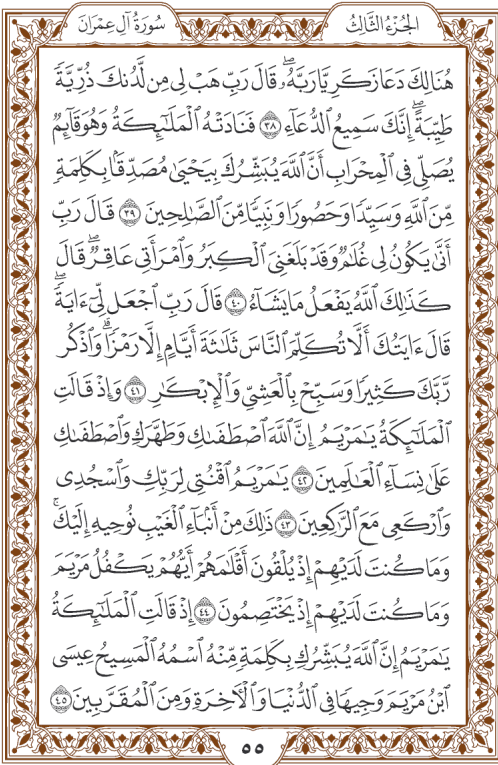 سُورَةُ آلِ عِمْرَانَ
الجُزْءُ الثَّالِثُ
هُنَالِكَ دَعَا زَكَرِيَّا رَبَّهُۥۖ قَالَ رَبِّ هَبْ لِى مِن لَّدُنكَ ذُرِّيَّةً
طَيِّبَةًۖ إِنَّكَ سَمِيعُ ٱلدُّعَآءِ ٣٨ فَنَادَتْهُ ٱلْمَلَـٰٓئِكَةُ وَهُوَ قَآئِمٌ
يُصَلِّى فِى ٱلْمِحْرَابِ أَنَّ ٱللَّهَ يُبَشِّرُكَ بِيَحْيَىٰ مُصَدِّقًۢا بِكَلِمَةٍ
مِّنَ ٱللَّهِ وَسَيِّدًا وَحَصُورًا وَنَبِيًّا مِّنَ ٱلصَّـٰلِحِينَ ٣٩ قَالَ رَبِّ
أَنَّىٰ يَكُونُ لِى غُلَـٰمٌ وَقَدْ بَلَغَنِىَ ٱلْكِبَرُ وَٱمْرَأَتِى عَاقِرٌۖ قَالَ
كَذَٰلِكَ ٱللَّهُ يَفْعَلُ مَا يَشَآءُ ٤٠ قَالَ رَبِّ ٱجْعَل لِّىٓ ءَايَةًۖ
قَالَ ءَايَتُكَ أَلَّا تُكَلِّمَ ٱلنَّاسَ ثَلَـٰثَةَ أَيَّامٍ إِلَّا رَمْزًاۗ وَٱذْكُر
رَّبَّكَ كَثِيرًا وَسَبِّحْ بِٱلْعَشِىِّ وَٱلْإِبْكَـٰرِ ٤١ وَإِذْ قَالَتِ
ٱلْمَلَـٰٓئِكَةُ يَـٰمَرْيَمُ إِنَّ ٱللَّهَ ٱصْطَفَىٰكِ وَطَهَّرَكِ وَٱصْطَفَىٰكِ
عَلَىٰ نِسَآءِ ٱلْعَـٰلَمِينَ ٤٢ يَـٰمَرْيَمُ ٱقْنُتِى لِرَبِّكِ وَٱسْجُدِى
وَٱرْكَعِى مَعَ ٱلرَّٰكِعِينَ ٤٣ ذَٰلِكَ مِنْ أَنۢبَآءِ ٱلْغَيْبِ نُوحِيهِ إِلَيْكَۚ
وَمَا كُنتَ لَدَيْهِمْ إِذْ يُلْقُونَ أَقْلَـٰمَهُمْ أَيُّهُمْ يَكْفُلُ مَرْيَمَ
وَمَا كُنتَ لَدَيْهِمْ إِذْ يَخْتَصِمُونَ ٤٤ إِذْ قَالَتِ ٱلْمَلَـٰٓئِكَةُ
يَـٰمَرْيَمُ إِنَّ ٱللَّهَ يُبَشِّرُكِ بِكَلِمَةٍ مِّنْهُ ٱسْمُهُ ٱلْمَسِيحُ عِيسَى
ٱبْنُ مَرْيَمَ وَجِيهًا فِى ٱلدُّنْيَا وَٱلْـَٔاخِرَةِ وَمِنَ ٱلْمُقَرَّبِينَ ٤٥
٥٥